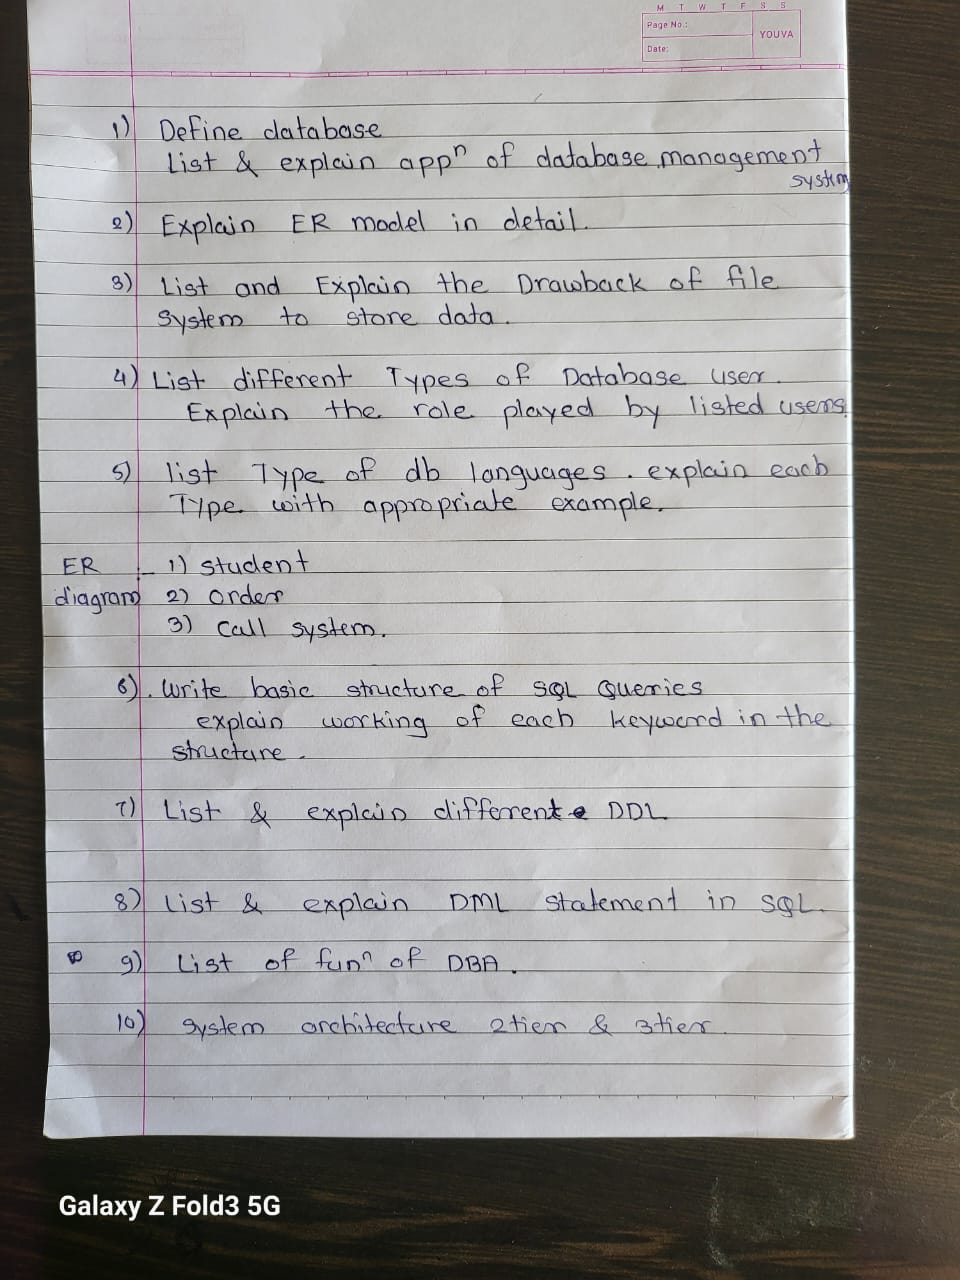 M T W T F S S
Page No.:
YOUVA
Date:
1) Define database
List & explain appn of database management
system
2) Explain ER model in detail.
3) List and Explain the Drawback of file
system to store data.
4) List different Types of Database user.
Explain the role played by listed users.
5) list Type of db languages. explain each
Type with appropriate example.
ER - 1) student
diagram 2) order
3) Call system.
6). Write basic structure of SQL Queries
explain working of each keyword in the
structure.
7) List & explain different DDL
8) List & explain DML statement in SQL.
9) List of funn of DBA.
10) System architecture 2tier & 3tier.
Galaxy Z Fold3 5G